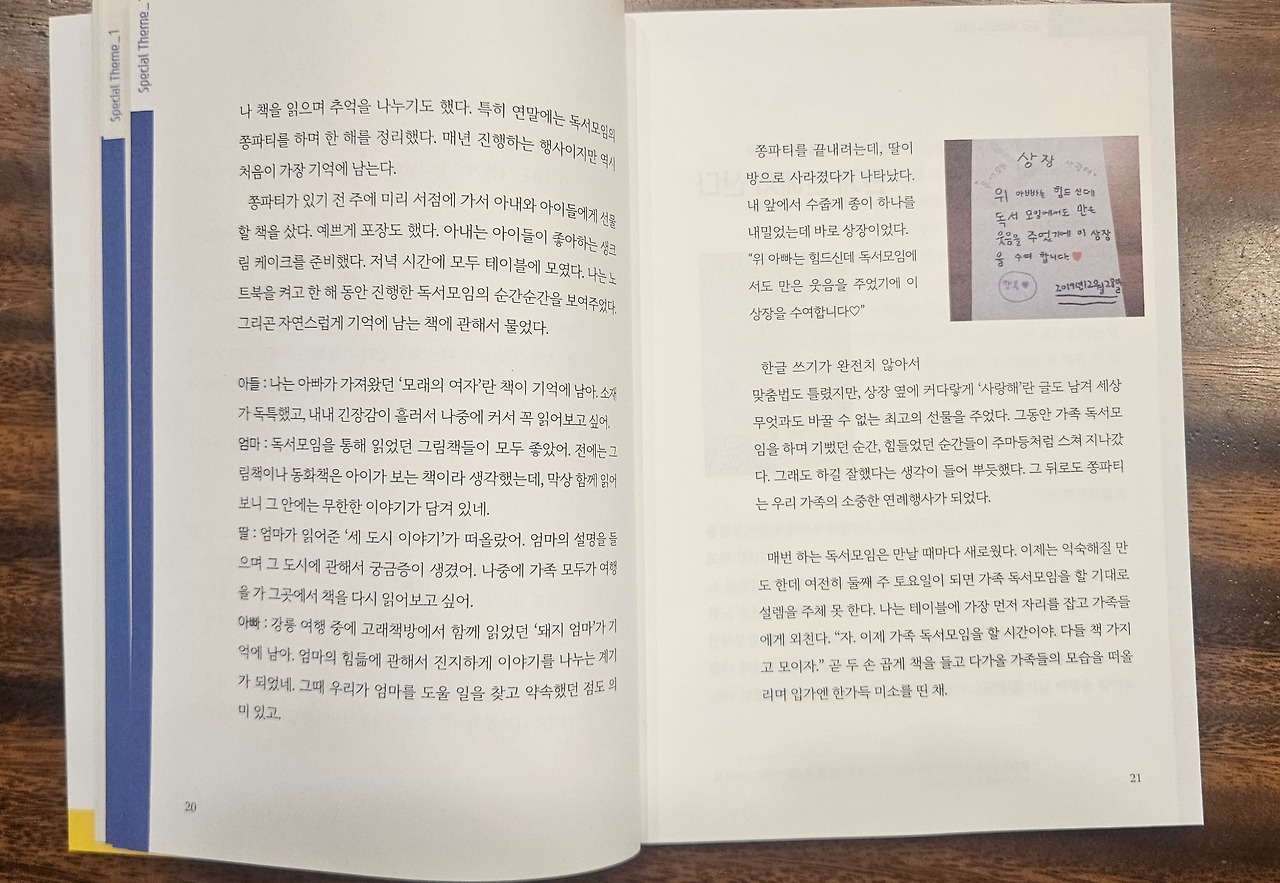 Special Theme_1
Special Theme_1
나 책을 읽으며 추억을 나누기도 했다. 특히 연말에는 독서모임의
쫑파티를 하며 한 해를 정리했다. 매년 진행하는 행사이지만 역시
처음이 가장 기억에 남는다.
쫑파티가 있기 전 주에 미리 서점에 가서 아내와 아이들에게 선물
할 책을 샀다. 예쁘게 포장도 했다. 아내는 아이들이 좋아하는 생크
림 케이크를 준비했다. 저녁 시간에 모두 테이블에 모였다. 나는 노
트북을 켜고 한 해 동안 진행한 독서모임의 순간순간을 보여주었다.
그리곤 자연스럽게 기억에 남는 책에 관해서 물었다.
아들 : 나는 아빠가 가져왔던 ‘모래의 여자’란 책이 기억에 남아. 소재
가 독특했고, 내내 긴장감이 흘러서 나중에 커서 꼭 읽어보고 싶어.
엄마 : 독서모임을 통해 읽었던 그림책들이 모두 좋았어. 전에는 그
림책이나 동화책은 아이가 보는 책이라 생각했는데, 막상 함께 읽어
보니 그 안에는 무한한 이야기가 담겨 있네.
딸 : 엄마가 읽어준 ‘세 도시 이야기’가 떠올랐어. 엄마의 설명을 들
으며 그 도시에 관해서 궁금증이 생겼어. 나중에 가족 모두가 여행
을 가 그곳에서 책을 다시 읽어보고 싶어.
아빠 : 강릉 여행 중에 고래책방에서 함께 읽었던 ‘돼지 엄마’가 기
억에 남아. 엄마의 힘듦에 관해서 진지하게 이야기를 나누는 계기
가 되었네. 그때 우리가 엄마를 도울 일을 찾고 약속했던 점도 의
미 있고.
20
쫑파티를 끝내려는데, 딸이
방으로 사라졌다가 나타났다.
내 앞에서 수줍게 종이 하나를
내밀었는데 바로 상장이었다.
“위 아빠는 힘드신데 독서모임에
서도 만은 웃음을 주었기에 이
상장을 수여합니다♡”
상장
위 아빠는 힘드신데
독서 모임에서도 만은
웃음을 주었기에 이 상장
을 수여 합니다.♥
2019년12월28일
한글 쓰기가 완전치 않아서
맞춤법도 틀렸지만, 상장 옆에 커다랗게 ‘사랑해’란 글도 남겨 세상
무엇과도 바꿀 수 없는 최고의 선물을 주었다. 그동안 가족 독서모
임을 하며 기뻤던 순간, 힘들었던 순간들이 주마등처럼 스쳐 지나갔
다. 그래도 하길 잘했다는 생각이 들어 뿌듯했다. 그 뒤로도 쫑파티
는 우리 가족의 소중한 연례행사가 되었다.
매번 하는 독서모임은 만날 때마다 새로웠다. 이제는 익숙해질 만
도 한데 여전히 둘째 주 토요일이 되면 가족 독서모임을 할 기대로
설렘을 주체 못 한다. 나는 테이블에 가장 먼저 자리를 잡고 가족들
에게 외친다. “자. 이제 가족 독서모임을 할 시간이야. 다들 책 가지
고 모이자.” 곧 두 손 곱게 책을 들고 다가올 가족들의 모습을 떠올
리며 입가엔 한가득 미소를 띤 채.
21